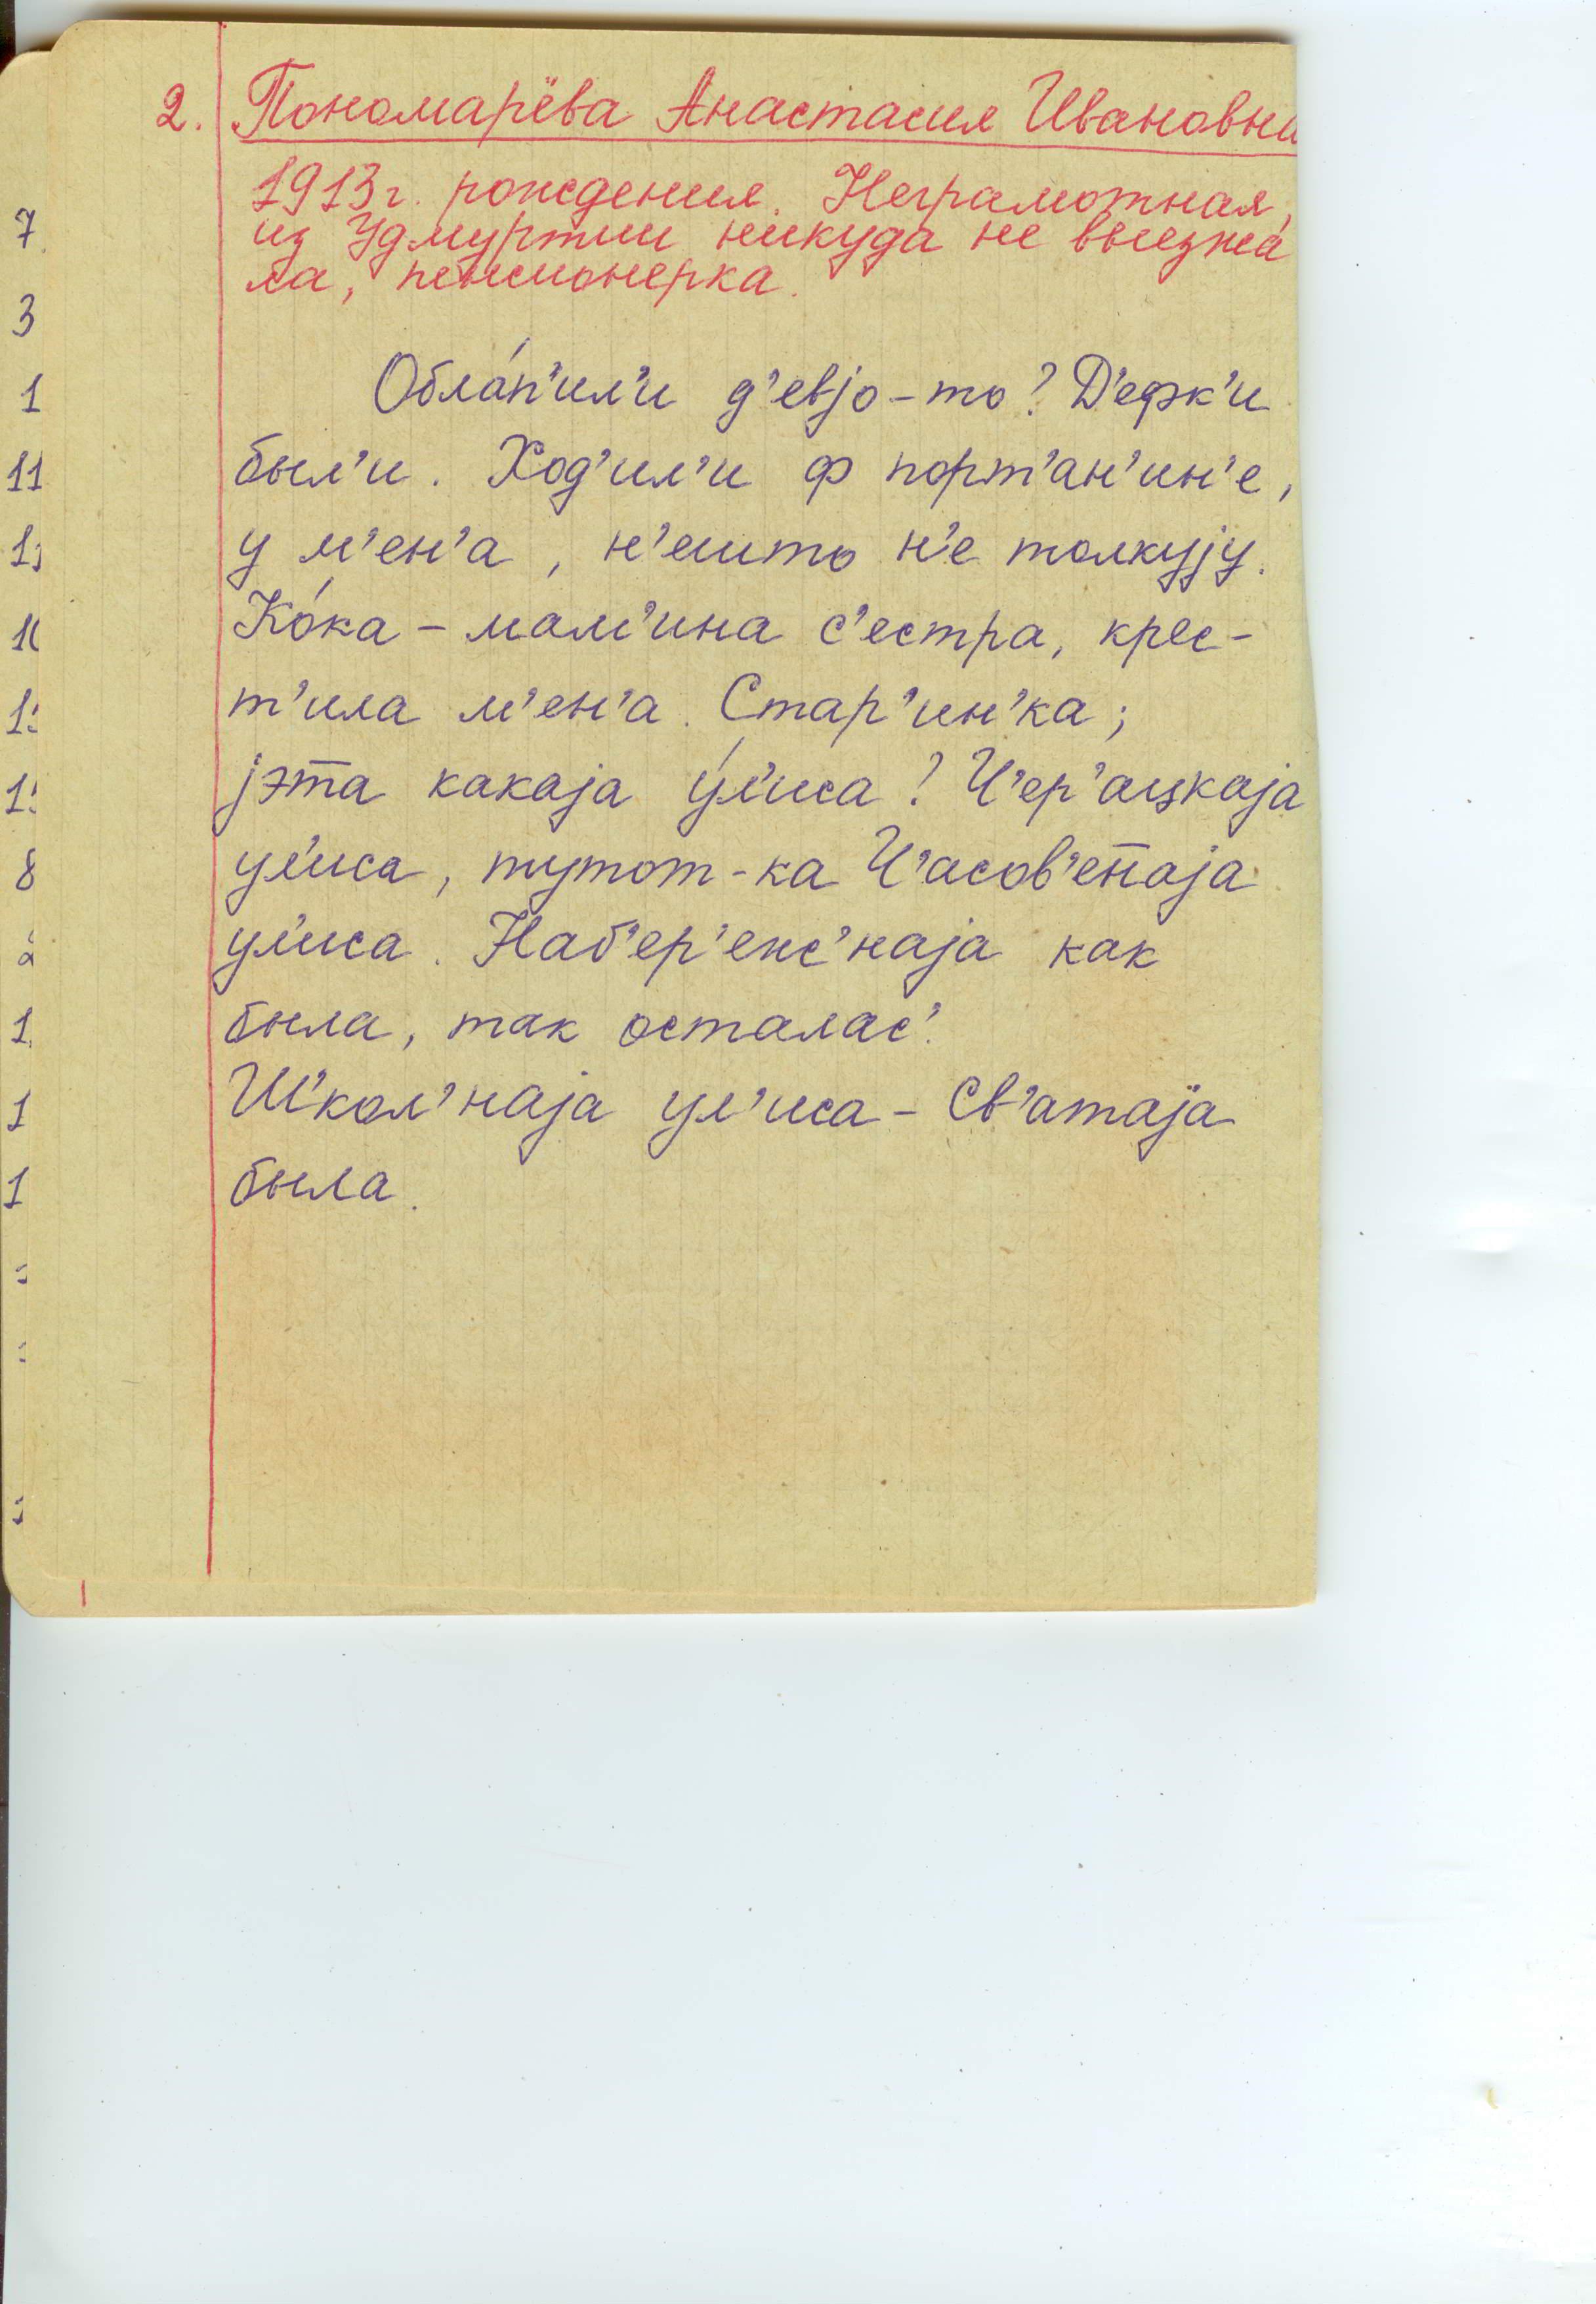 2. Пономарёва Анастасия Ивановна
1913 г. рождения. Неграмотная,
из Удмуртии никуда не выезжа
ла, пенсионерка.
Обла́п'ил'и д'евjо-то? Д'ефк'и
был'и. Ход'ил'и ф порт'ан'ин'е,
у м'ен'а, н'ешто н'е толкуjу.
Ко́ка - мам'ина с'естра, крес-
т'ила м'ен'а. Стар'ин'ка;
jэта какаjа у́л'иса? Ч'ер'ацкаjа
ул'иса, тутот-ка Ч'асов'еннаjа
ул'иса. Наб'ер'енс'наjа как
была, так осталас'.
Ш'кол'наjа ул'иса - Св'атаjа
была.
7
3
1
11
8
1
1
1